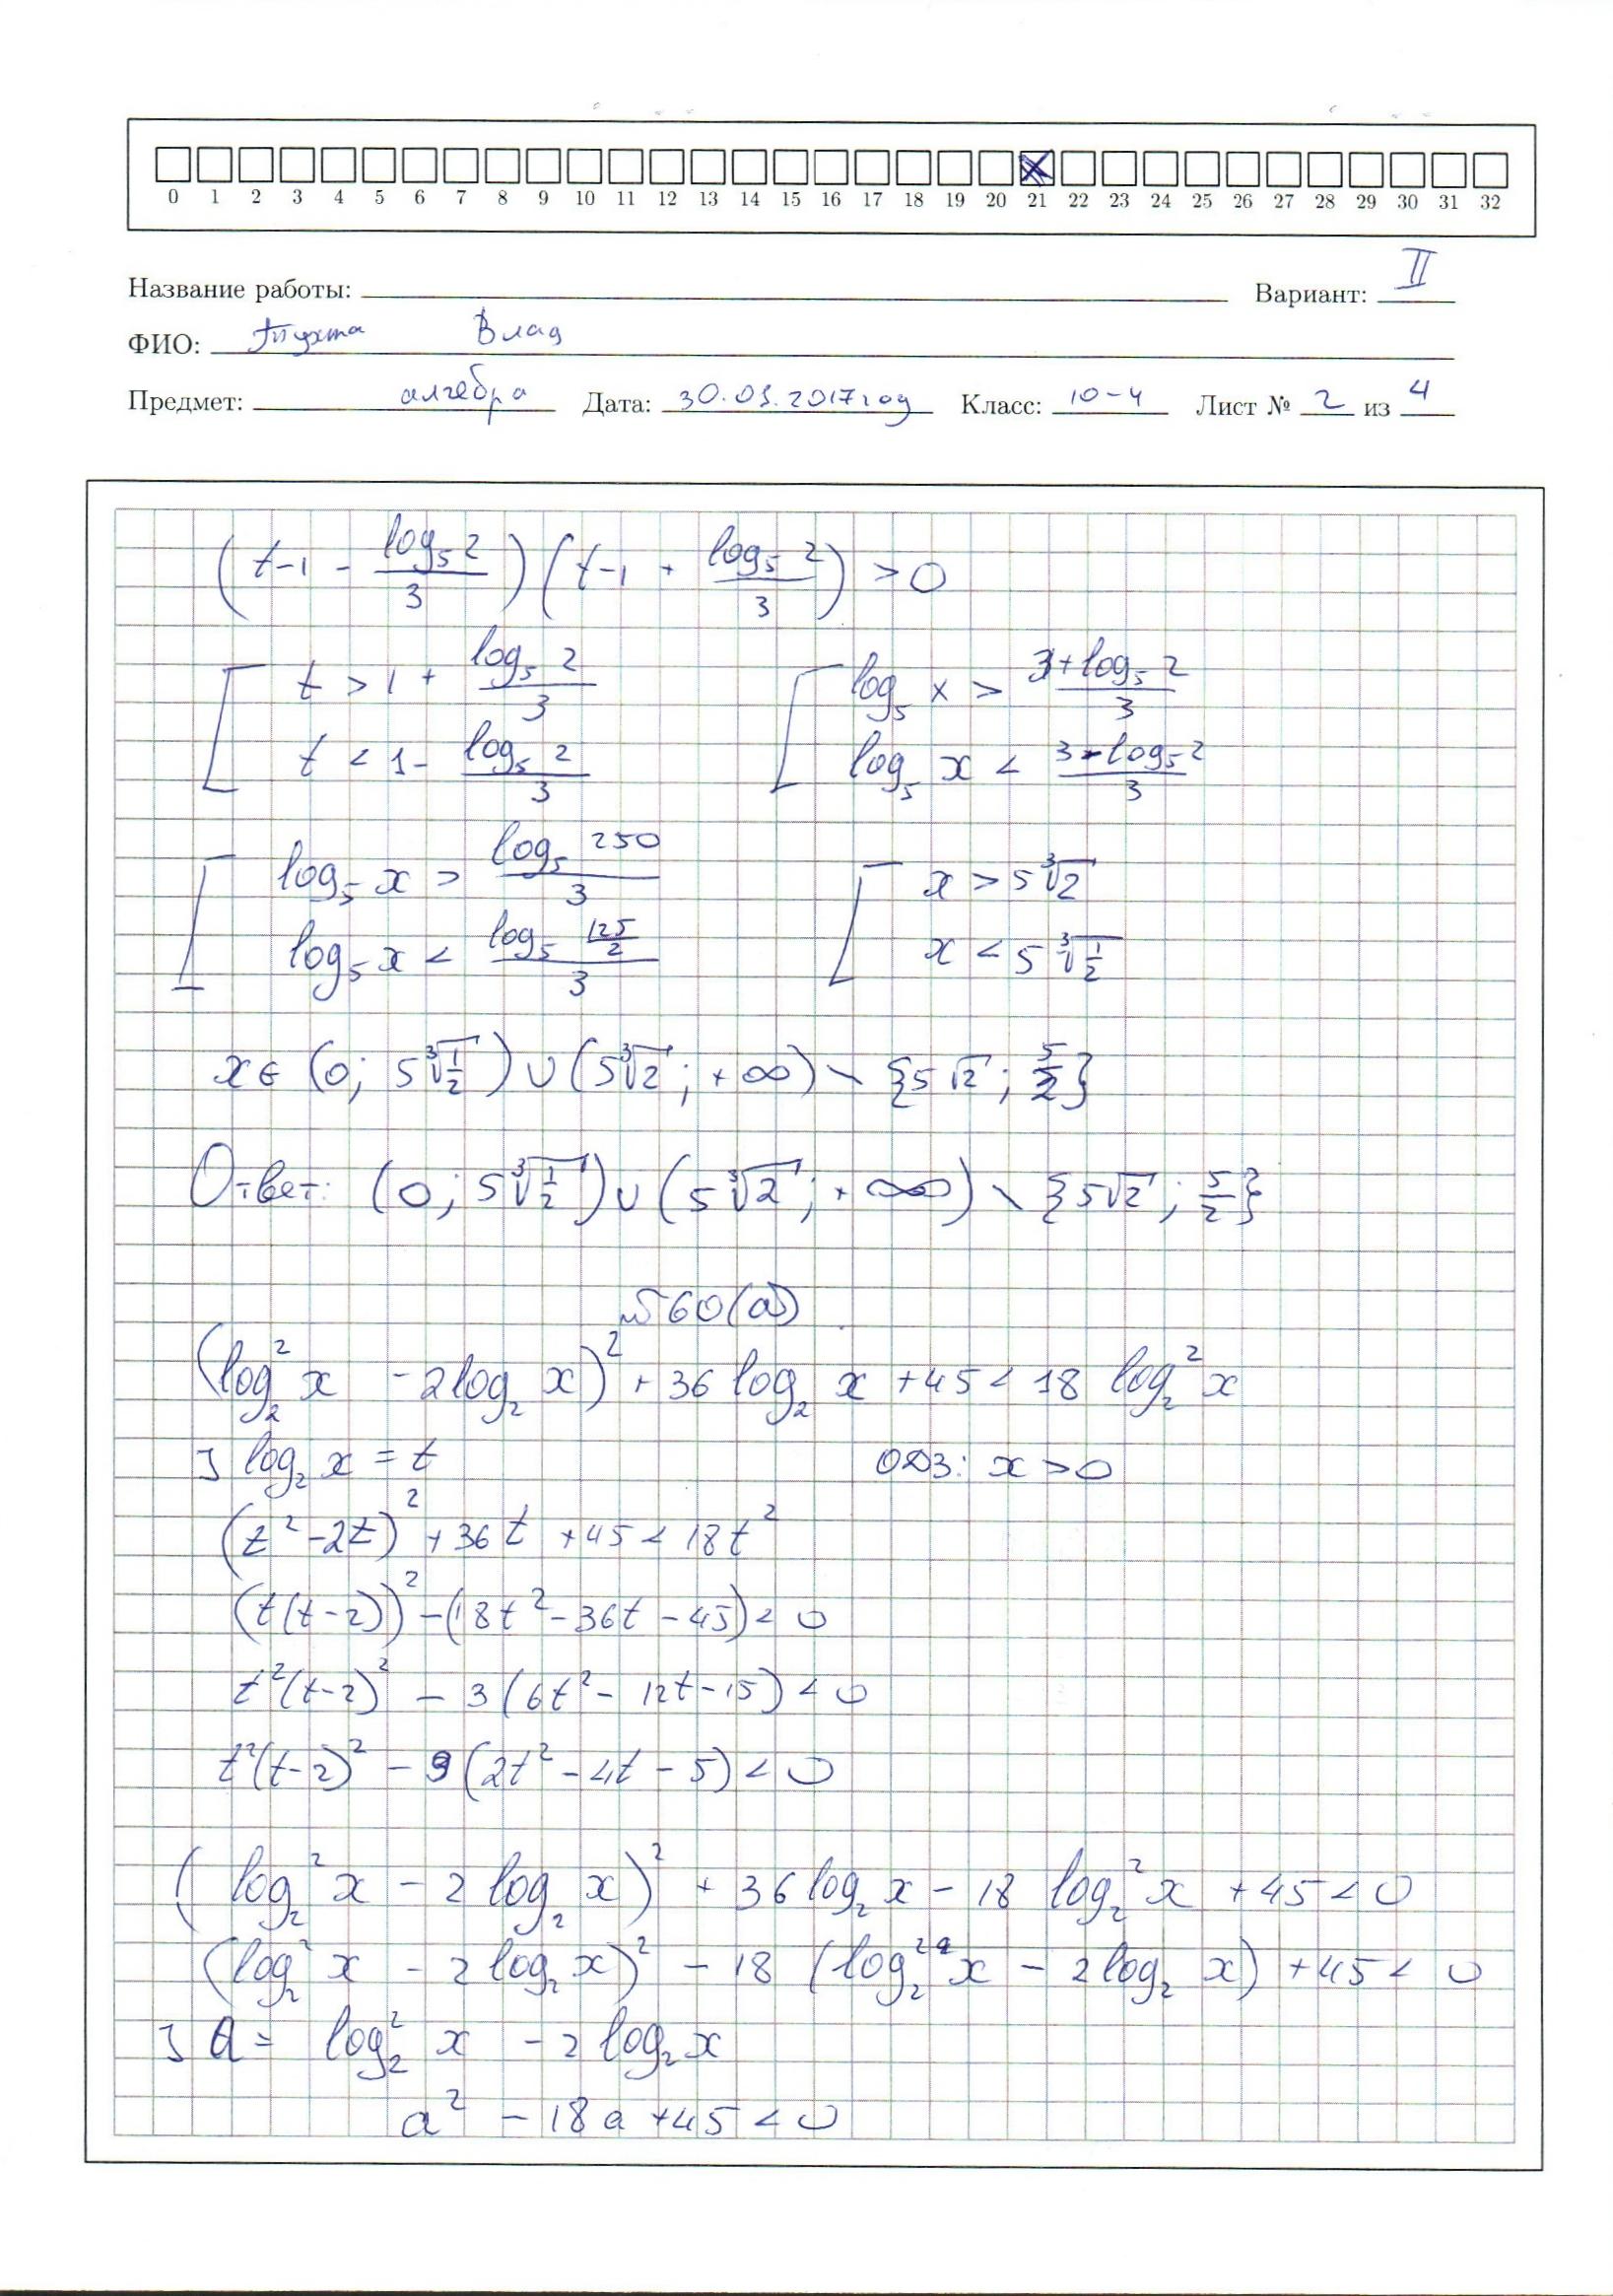 0 1 2 3 4 5 6 7 8 9 10 11 12 13 14 15 16 17 18 19 20 21 22 23 24 25 26 27 28 29 30 31 32
Название работы: Вариант: II
ФИО: Влад
Предмет: алгебра Дата: 30.03.2017год Класс: 10-4 Лист № 2 из 4
(t-1 - log₅2/3)(t-1 + log₅2/3) > 0
[ t > 1 + log₅2/3 [ log₅x > (3+log₅2)/3
t < 1 - log₅2/3 log₅x < (3-log₅2)/3
[ log₅x > log₅250/3 [ x > 5∛2
log₅x < log₅(125/2)/3 x < 5∛(1/2)
x∈(0; 5∛(1/2)) ∪ (5∛2; +∞) \ {5√2; 5/2}
Ответ: (0; 5∛(1/2)) ∪ (5∛2; +∞) \ {5√2; 5/2}
№560(а)
(log₂²x - 2log₂x)² + 36log₂x + 45 < 18log₂²x
] log₂x = t ОДЗ: x > 0
(t² - 2t)² + 36t + 45 < 18t²
(t(t-2))² - (18t² - 36t - 45) < 0
t²(t-2)² - 3(6t² - 12t - 15) < 0
t²(t-2)² - 9(2t² - 4t - 5) < 0
(log₂²x - 2log₂x)² + 36log₂x - 18log₂²x + 45 < 0
(log₂²x - 2log₂x)² - 18(log₂²x - 2log₂x) + 45 < 0
] a = log₂²x - 2log₂x
a² - 18a + 45 < 0